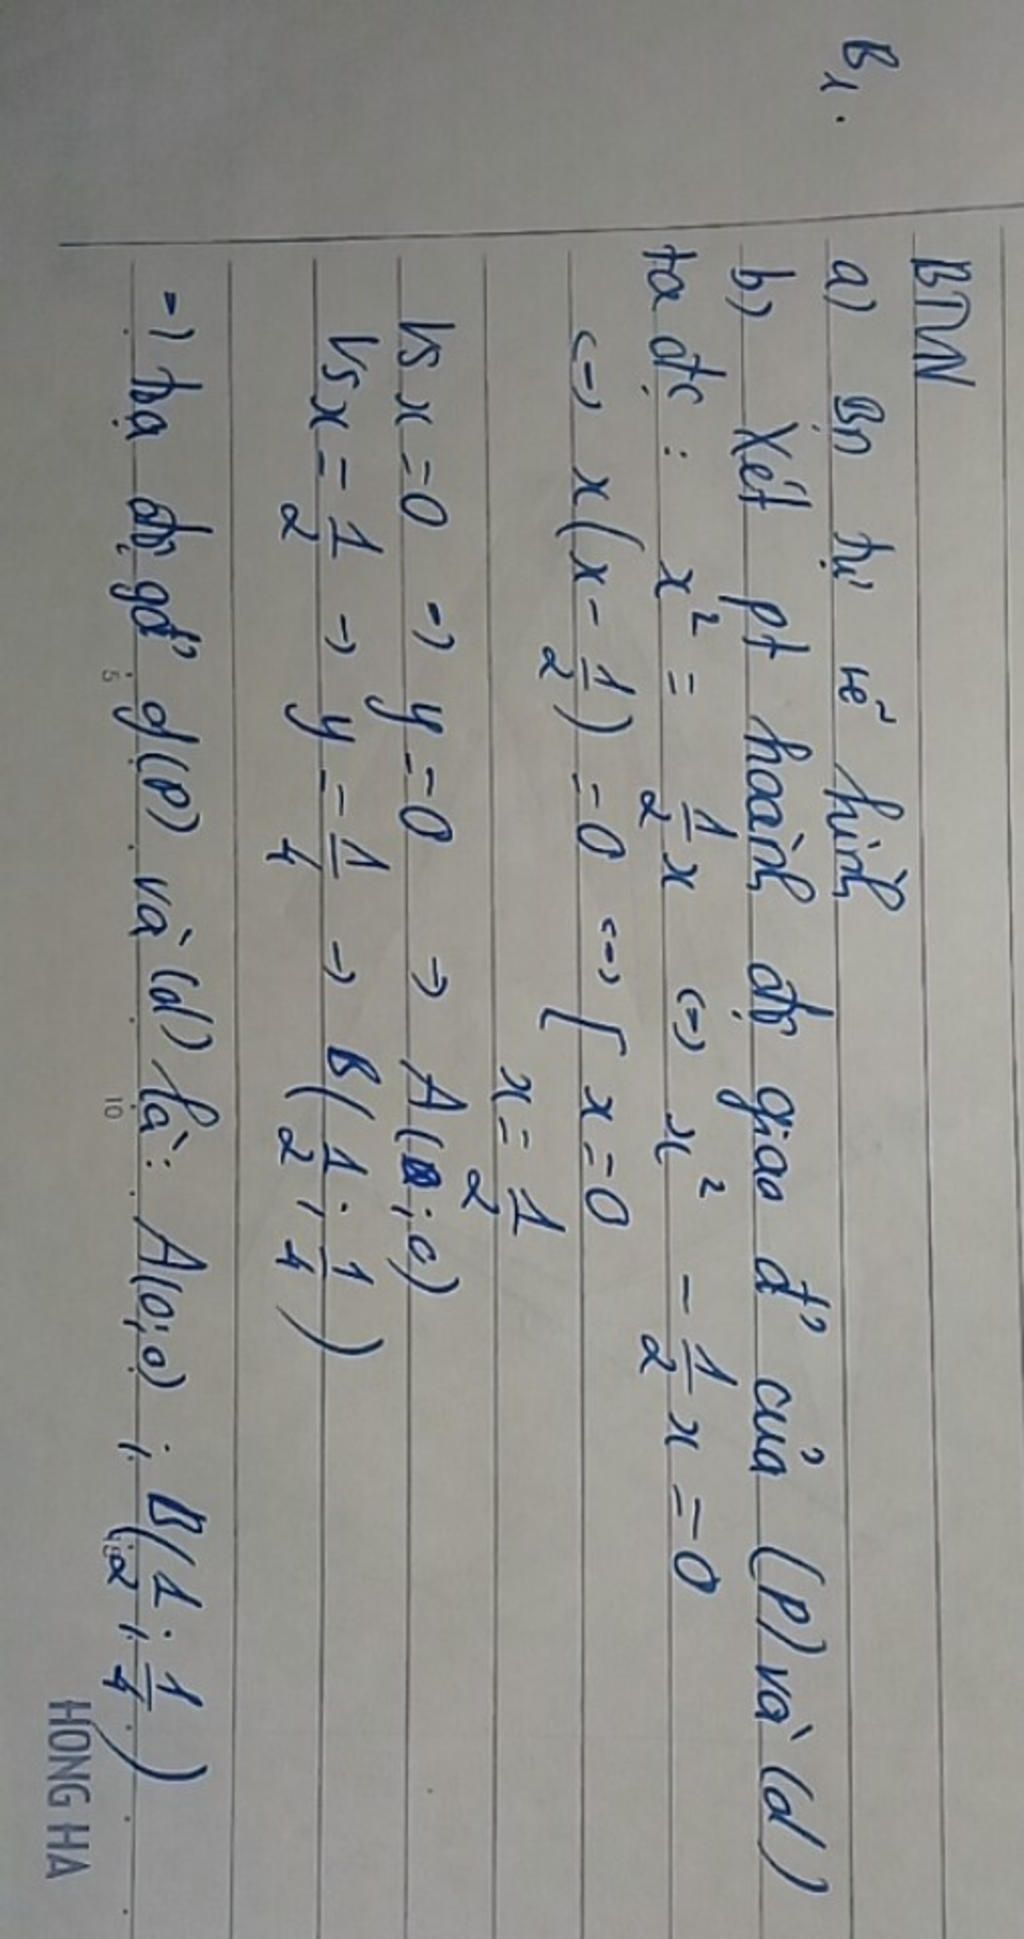 B1.
BLVN
a) Bn tự vẽ hình
b) Xét pt hoành độ giao đ' của (P) và (d)
ta đc: x² = 1/2 x <=> x² - 1/2 x = 0
<=> x(x - 1/2) = 0 <=> [ x = 0
x = 1/2
Vs x = 0 -> y = 0 -> A(0; 0)
Vs x = 1/2 -> y = 1/4 -> B(1/2; 1/4)
=> tọa độ gđ' d(P) và (d) là: A(0;0); B(1/2; 1/4)
5
10
HONG HA